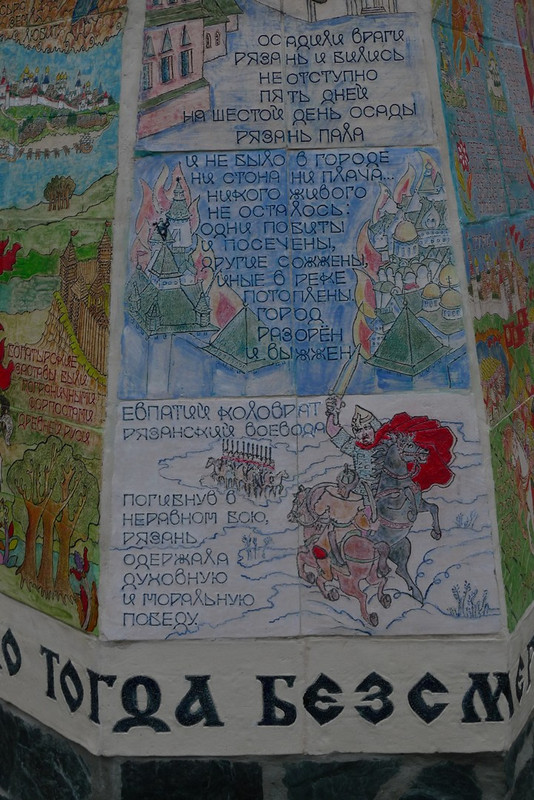 ОСАДИЛИ ВРАГИ
РЯЗАНЬ И БИЛИСЬ
НЕОТСТУПНО
ПЯТЬ ДНЕЙ
НА ШЕСТОЙ ДЕНЬ ОСАДЫ
РЯЗАНЬ ПАЛА
И НЕ БЫЛО В ГОРОДЕ
НИ СТОНА НИ ПЛАЧА...
НИКОГО ЖИВОГО
НЕ ОСТАЛОСЬ:
ОДНИ ПОБИТЫ
И ПОСЕЧЕНЫ,
ДРУГИЕ СОЖЖЕНЫ,
ИНЫЕ В РЕКЕ
ПОТОПЛЕНЫ.
ГОРОД
РАЗОРЁН
И ВЫЖЖЕН
ЕВПАТИЙ КОЛОВРАТ
РЯЗАНСКИЙ ВОЕВОДА
ПОГИБНУВ В
НЕРАВНОМ БОЮ,
РЯЗАНЬ
ОДЕРЖАЛА
ДУХОВНУЮ
И МОРАЛЬНУЮ
ПОБЕДУ.
БОГАТЫРСКИЕ
ЗАСТАВЫ БЫЛИ
ПОГРАНИЧНЫМИ
ФОРПОСТАМИ
ДРЕВНЕЙ РУСИ
ТОГДА БЕЗСМЕР